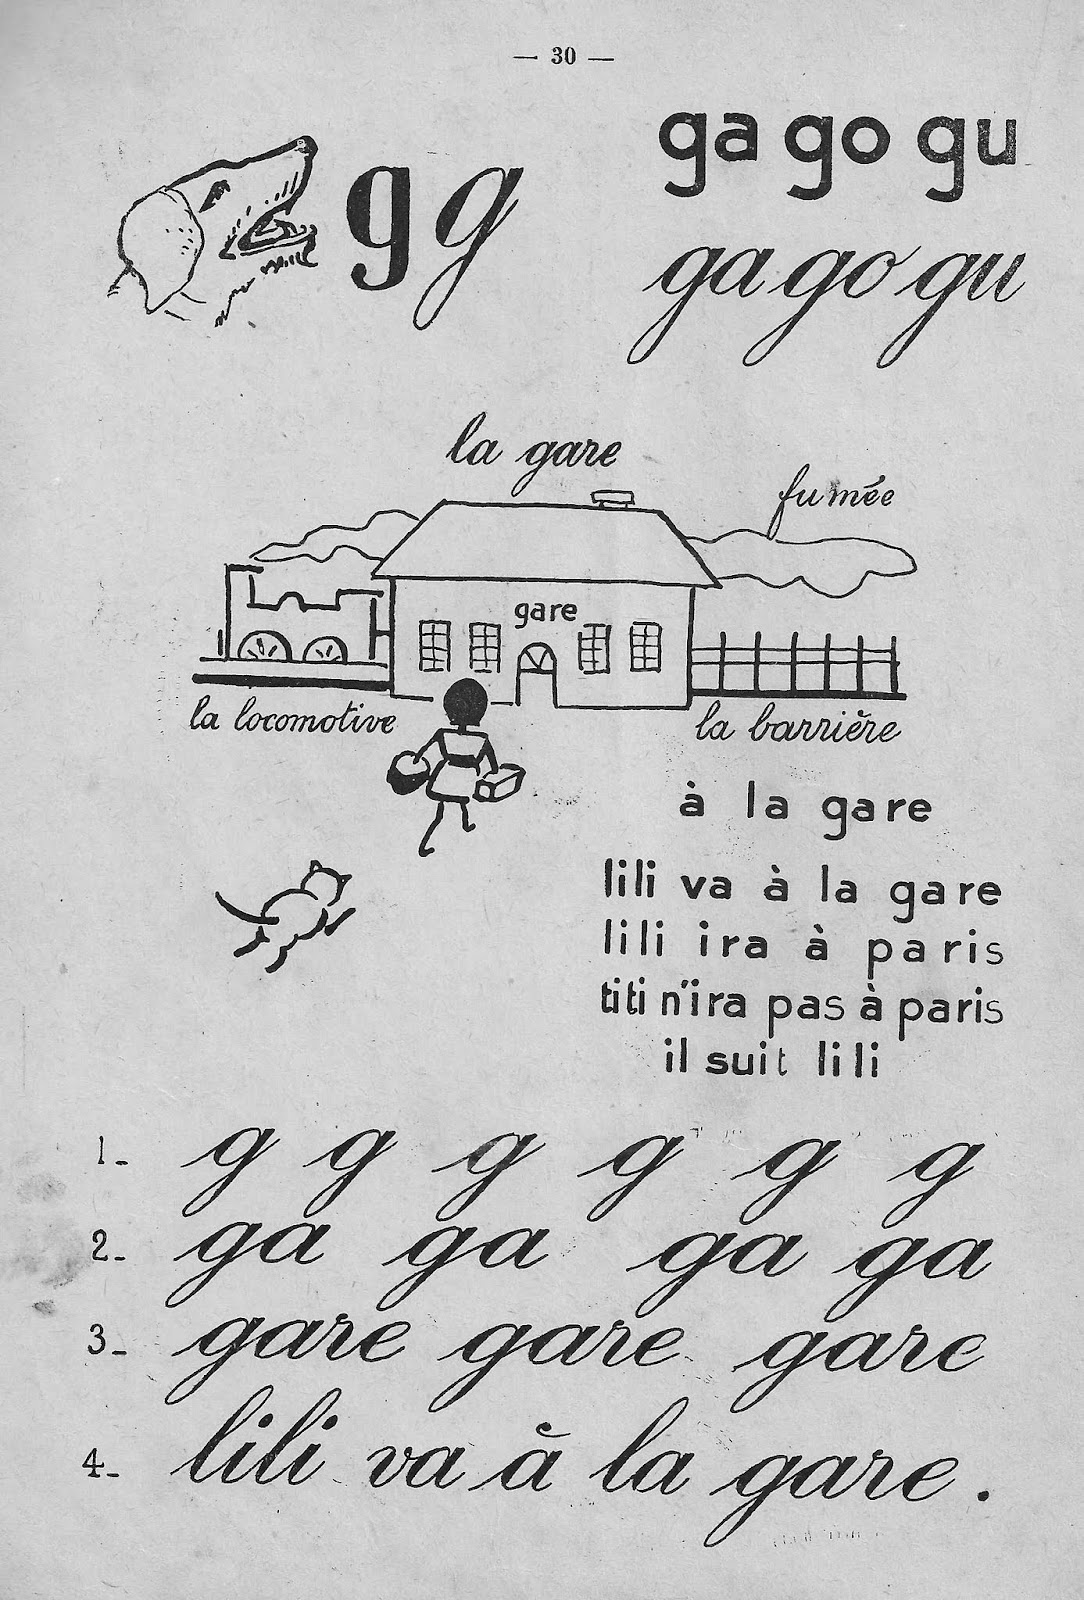 — 30 —
g g
ga go gu
ga go gu
la gare
fumée
gare
la locomotive
la barrière
à la gare
lili va à la gare
lili ira à paris
titi n'ira pas à paris
il suit lili
1- g g g g g g
2- ga ga ga ga
3- gare gare gare
4- lili va à la gare.